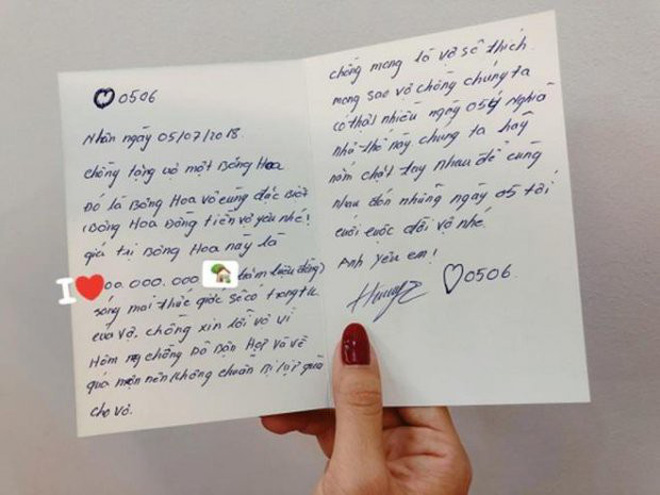 ♡0506
Nhân ngày 05/07/2018.
chồng tặng vợ một Bông Hoa
Đó là Bông Hoa vô cùng đặc Biệt
(Bông Hoa Đồng tiền vợ yêu nhé!
giá trị Bông Hoa này là
I ❤ 00.000.000 trăm triệu đồng)
sáng mai thức giấc sẽ có trong tk
của vợ. chồng xin lỗi vợ vì
Hôm nay chồng Đô Bận Họp và về
quá muộn nên không chuẩn Bị kịp quà
cho vợ.
chồng mong là vợ sẽ thích.
mong sao vợ chồng chúng ta
có thật nhiều ngày 05 Nghĩa
như thế này chúng ta hãy
nắm chặt tay nhau để cùng
nhau đón những ngày 05 tới
cuối cuộc đời vợ nhé.
Anh yêu em!
♡0506.